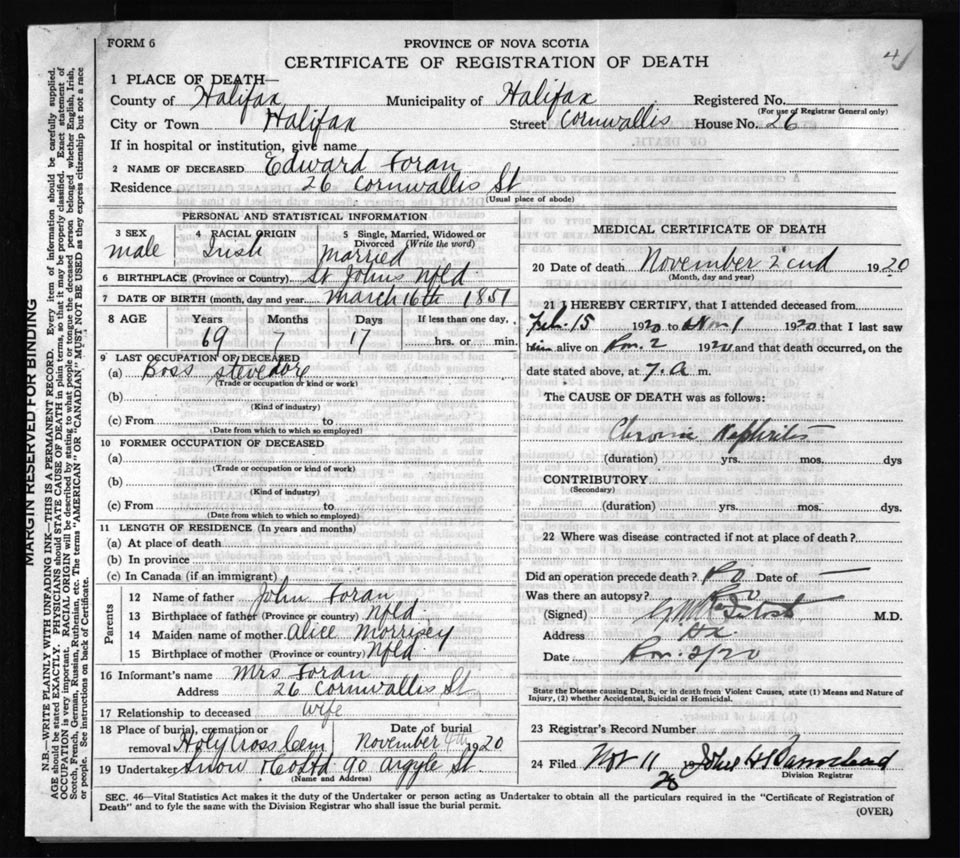 FORM 6
PROVINCE OF NOVA SCOTIA
CERTIFICATE OF REGISTRATION OF DEATH
4
1 PLACE OF DEATH—
County of Halifax Municipality of Halifax Registered No.
(For use of Registrar General only)
City or Town Halifax Street Cornwallis House No. 26
If in hospital or institution, give name
2 NAME OF DECEASED Edward Foran
Residence 26 Cornwallis St
(Usual place of abode)
PERSONAL AND STATISTICAL INFORMATION
3 SEX 4 RACIAL ORIGIN 5 Single, Married, Widowed or Divorced (Write the word)
male Irish Married
6 BIRTHPLACE (Province or Country) St Johns Nfld
7 DATE OF BIRTH (month, day and year) March 16th 1851
8 AGE Years Months Days If less than one day,
69 7 17 hrs. or min.
9 LAST OCCUPATION OF DECEASED
(a) Boss stevedore
(Trade or occupation or kind or work)
(b)
(Kind of industry)
(c) From to
(Date from which to which so employed)
10 FORMER OCCUPATION OF DECEASED
(a)
(Trade or occupation or kind of work)
(b)
(Kind of industry)
(c) From to
(Date from which to which so employed)
11 LENGTH OF RESIDENCE (In years and months)
(a) At place of death
(b) In province
(c) In Canada (if an immigrant)
Parents
12 Name of father John Foran
13 Birthplace of father (Province or country) Nfld
14 Maiden name of mother Alice Morrisey
15 Birthplace of mother (Province or country) Nfld
16 Informant's name Mrs Foran
Address 26 Cornwallis St
17 Relationship to deceased wife
18 Place of burial, cremation or removal Holy Cross Cem Date of burial November 4th 1920
19 Undertaker Snow & Co Ltd 90 Argyle St.
(Name and Address)
MEDICAL CERTIFICATE OF DEATH
20 Date of death November 2cnd 1920
(Month, day and year)
21 I HEREBY CERTIFY, that I attended deceased from
Feb. 15 1920 to Nov 1 1920 that I last saw
him alive on Nov. 2 1920 and that death occurred, on the
date stated above, at 7.a m.
The CAUSE OF DEATH was as follows:
Chronic Nephritis
(duration) yrs. mos. dys
CONTRIBUTORY
(Secondary)
(duration) yrs. mos. dys.
22 Where was disease contracted if not at place of death?
Did an operation precede death? No Date of —
Was there an autopsy? No
(Signed) M.D.
Address Hx.
Date Nov. 2/20
State the Disease causing Death, or in death from Violent Causes, state (1) Means and Nature of Injury, (2) whether Accidental, Suicidal or Homicidal.
23 Registrar's Record Number
24 Filed Nov 11 19 20
Division Registrar
SEC. 46—Vital Statistics Act makes it the duty of the Undertaker or person acting as Undertaker to obtain all the particulars required in the "Certificate of Registration of
Death" and to fyle the same with the Division Registrar who shall issue the burial permit.
(OVER)
MARGIN RESERVED FOR BINDING
N.B.—WRITE PLAINLY WITH UNFADING INK—THIS IS A PERMANENT RECORD. Every item of information should be carefully supplied.
AGE should be stated EXACTLY. PHYSICIANS should STATE CAUSE OF DEATH in plain terms, so that it may be properly classified. Exact statement of
OCCUPATION is very important. RACIAL ORIGIN will be described by stating to what people or tongue the deceased person belonged whether English, Irish,
Scotch, French, German, Russian, Ruthenian, etc. The terms "AMERICAN" OR "CANADIAN" MUST NOT BE USED as they express citizenship but not a race
or people. See instructions on back of Certificate.